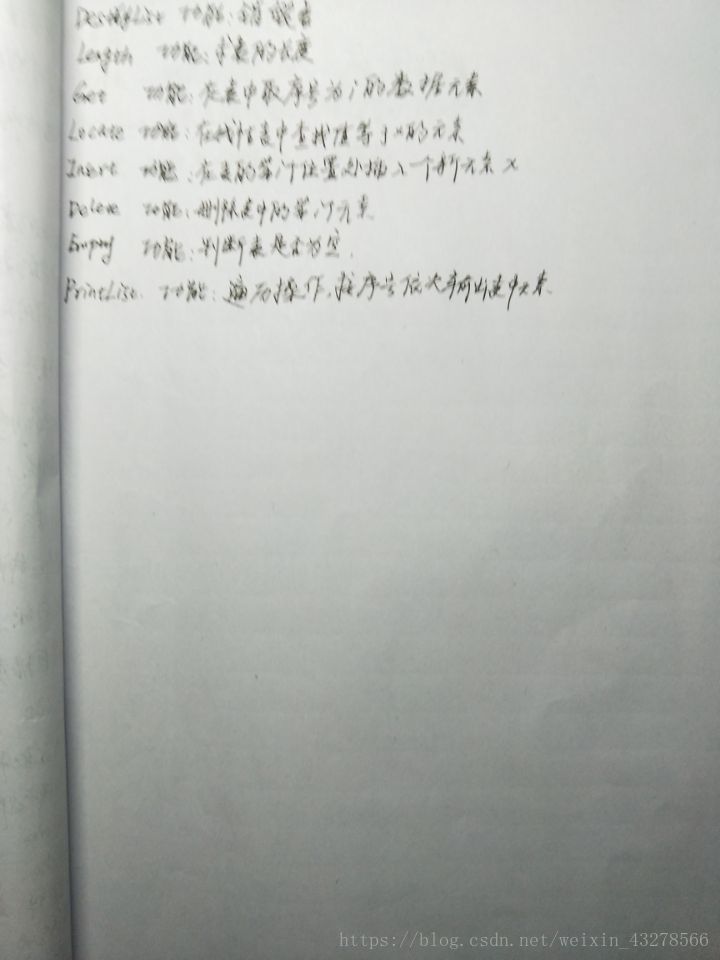 DestroyList 功能：销毁表
Length 功能：求表的长度
Get 功能：在表中取序号为i的数据元素
Locate 功能：在线性表中查找值等于x的元素
Insert 功能：在表的第i个位置处插入一个新元素x
Delete 功能：删除表中的第i个元素
Empty 功能：判断表是否为空.
PrintList 功能：遍历操作，按序号依次输出表中元素.
https://blog.csdn.net/weixin_43278566